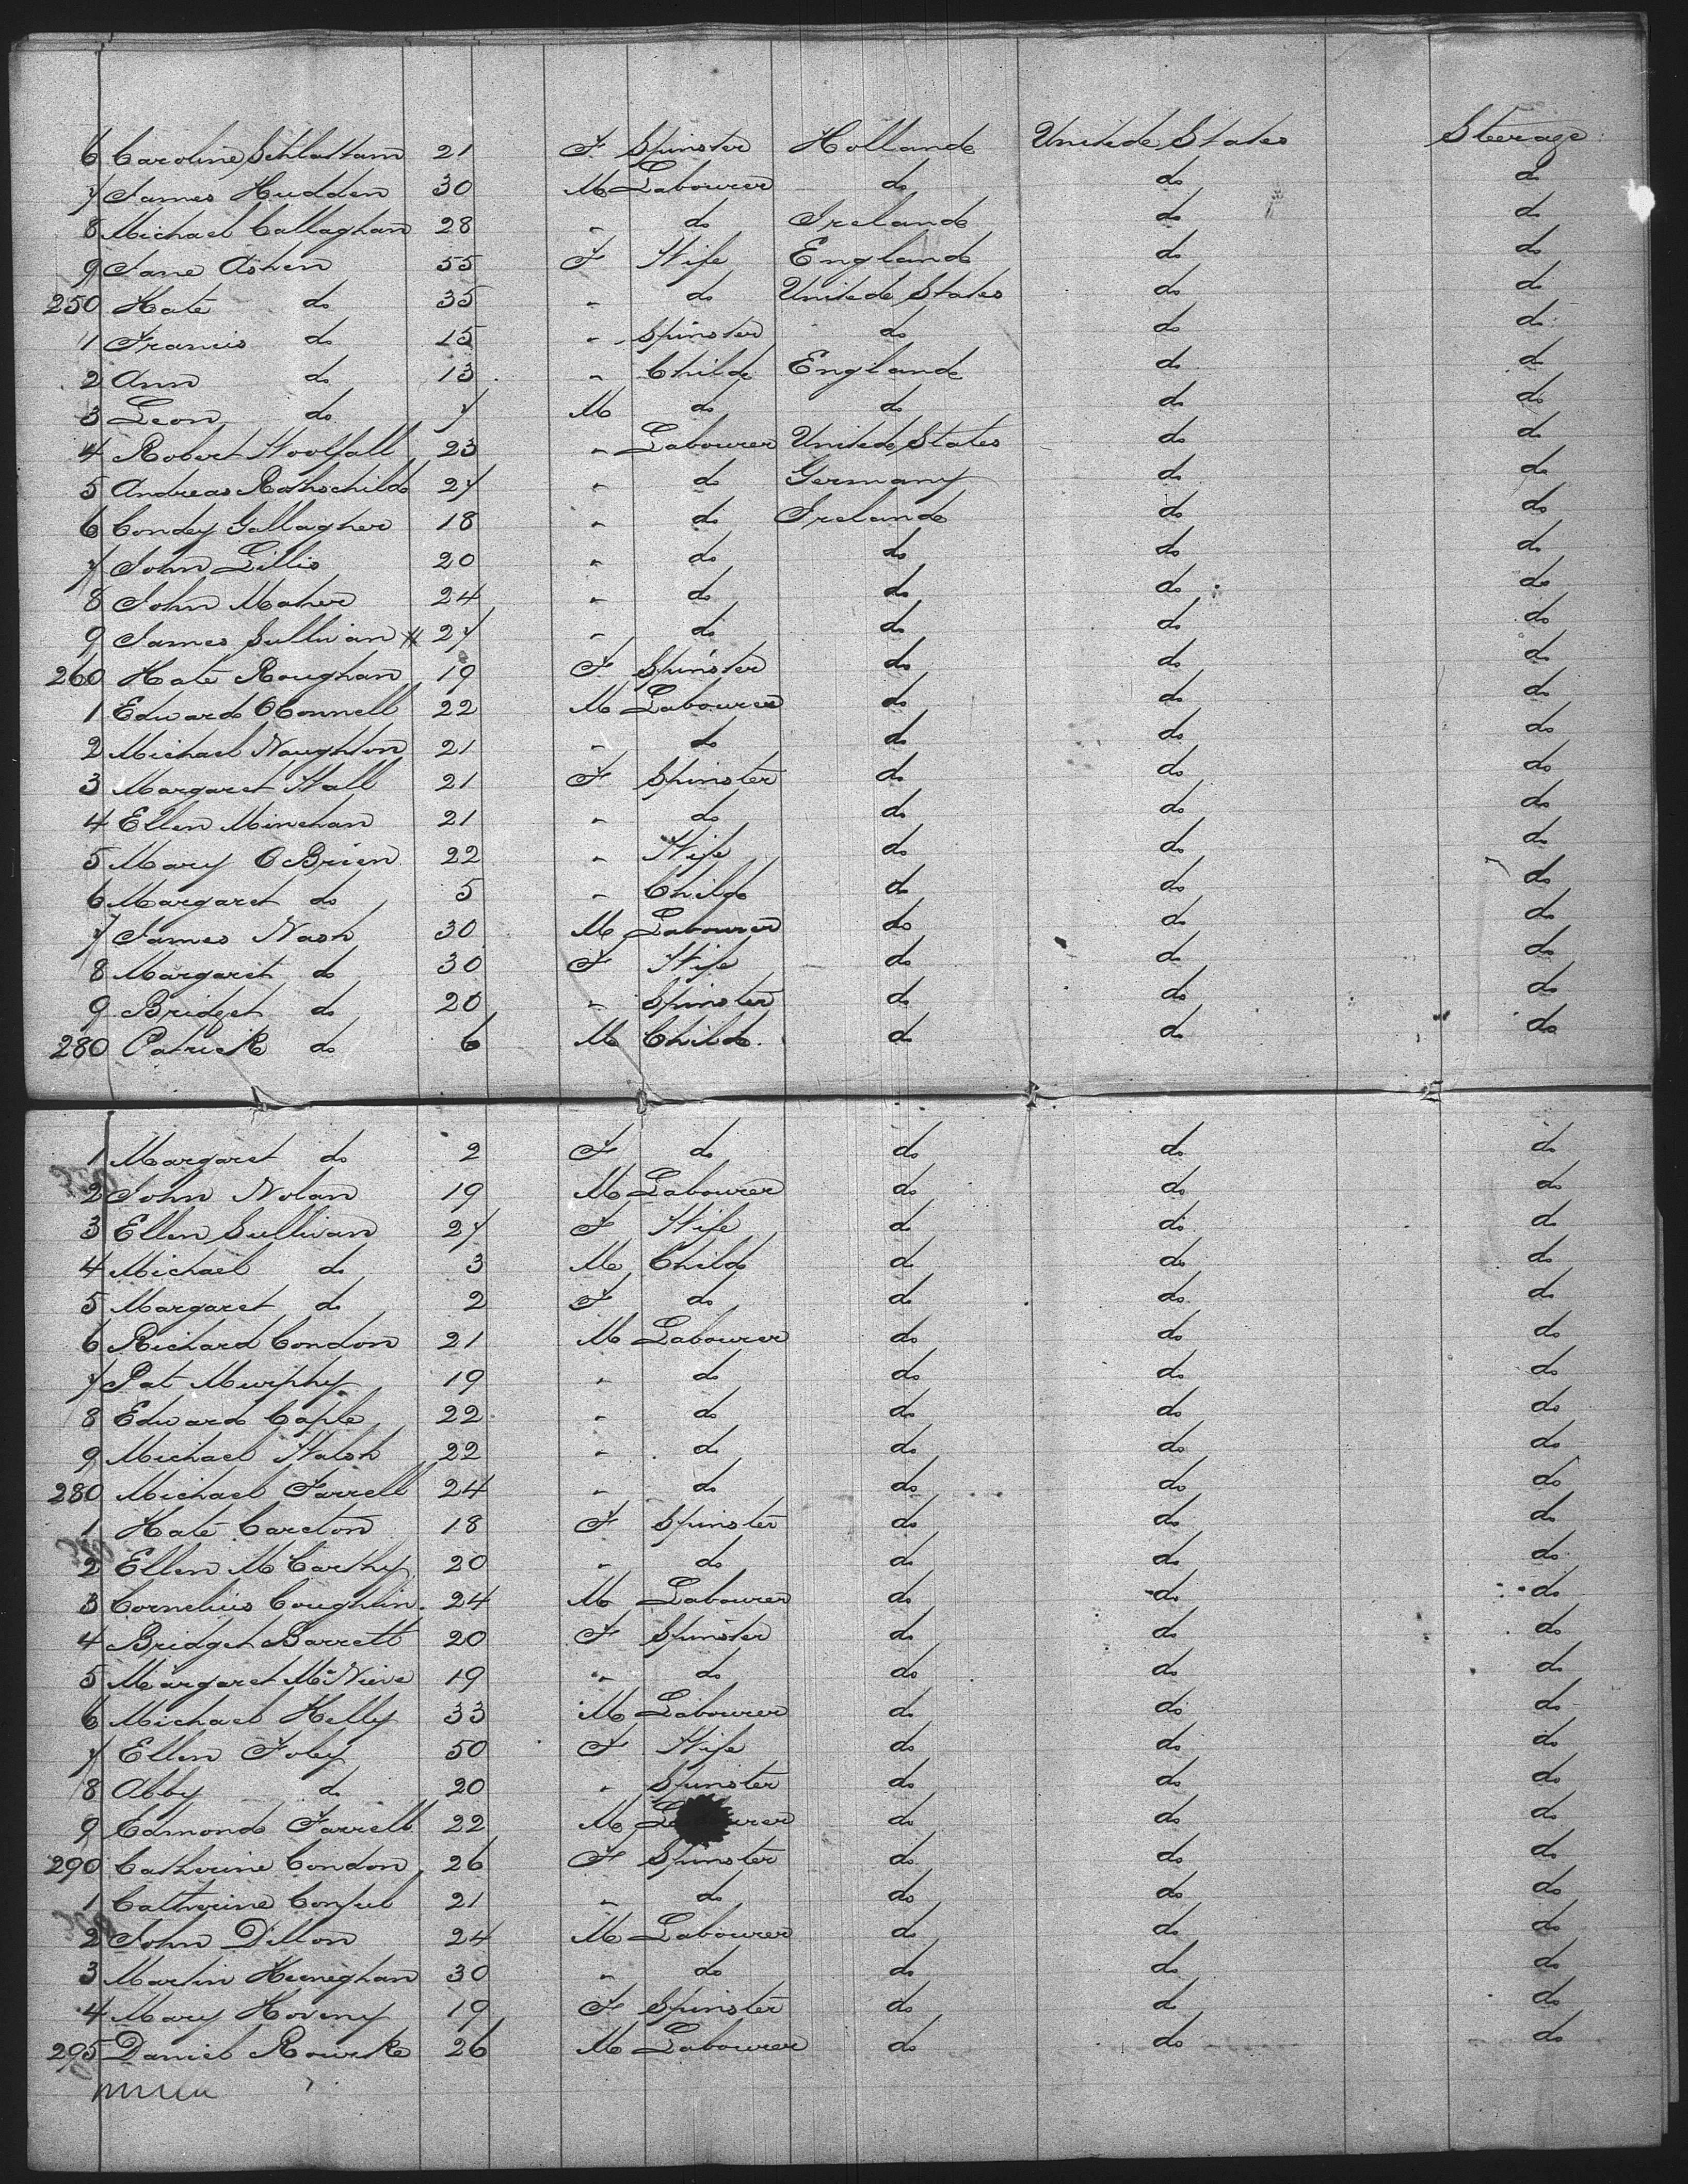 6 Caroline Schlattam 21 F. Spinster Holland United States Steerage
7 James Hudden 30 M Labourer do do do
8 Michael Callaghan 28 " do Ireland do do
9 Jane Ashen 55 F Wife England do do
250 Kate do 35 " do United States do do
1 Francis do 15 " Spinster do do do
2 Ann do 13 " Child England do do
3 Leon do 7 M do do do do
4 Robert Woolfall 23 " Labourer United States do do
5 Andreas Rothschild 27 " do Germany do do
6 Condey Gallagher 18 " do Ireland do do
7 John Lillis 20 " do do do do
8 John Maher 24 " do do do do
9 James Sullivan # 27 " do do do do
260 Kate Roughan 19 F Spinster do do do
1 Edward OConnell 22 M Labourer do do do
2 Michael Naughton 21 " do do do do
3 Margaret Wall 21 F Spinster do do do
4 Ellen Minehan 21 " do do do do
5 Mary OBrien 22 " Wife do do do
6 Margaret do 5 " Child do do do
7 James Nash 30 M Labourer do do do
8 Margaret do 30 F Wife do do do
9 Bridget do 20 " Spinster do do do
280 Patrick do 6 M Child do do do
1 Margaret do 2 F do do do do
2 John Nolan 19 M Labourer do do do
3 Ellen Sullivan 27 F Wife do do do
4 Michael do 3 M Child do do do
5 Margaret do 2 F do do do do
6 Richard Condon 21 M Labourer do do do
7 Pat Murphy 19 " do do do do
8 Edward Caple 22 " do do do do
9 Michael Walsh 22 " do do do do
280 Michael Farrell 24 " do do do do
1 Kate Careton 18 F Spinster do do do
2 Ellen McCarthy 20 " do do do do
3 Cornelius Coughlin 24 M Labourer do do do
4 Bridget Barrett 20 F Spinster do do do
5 Margaret McNieve 19 " do do do do
6 Michael Kelly 33 M Labourer do do do
7 Ellen Foley 50 F Wife do do do
8 Abby do 20 " Spinster do do do
9 Edmond Farrell 22 M Labourer do do do
290 Catherine Condon 26 F Spinster do do do
1 Catherine 21 " do do do do
2 John Dillon 24 M Labourer do do do
3 Martin Heneghan 30 " do do do do
4 Mary Hoveny 19 F Spinster do do do
295 Daniel Rourke 26 M Labourer do do do